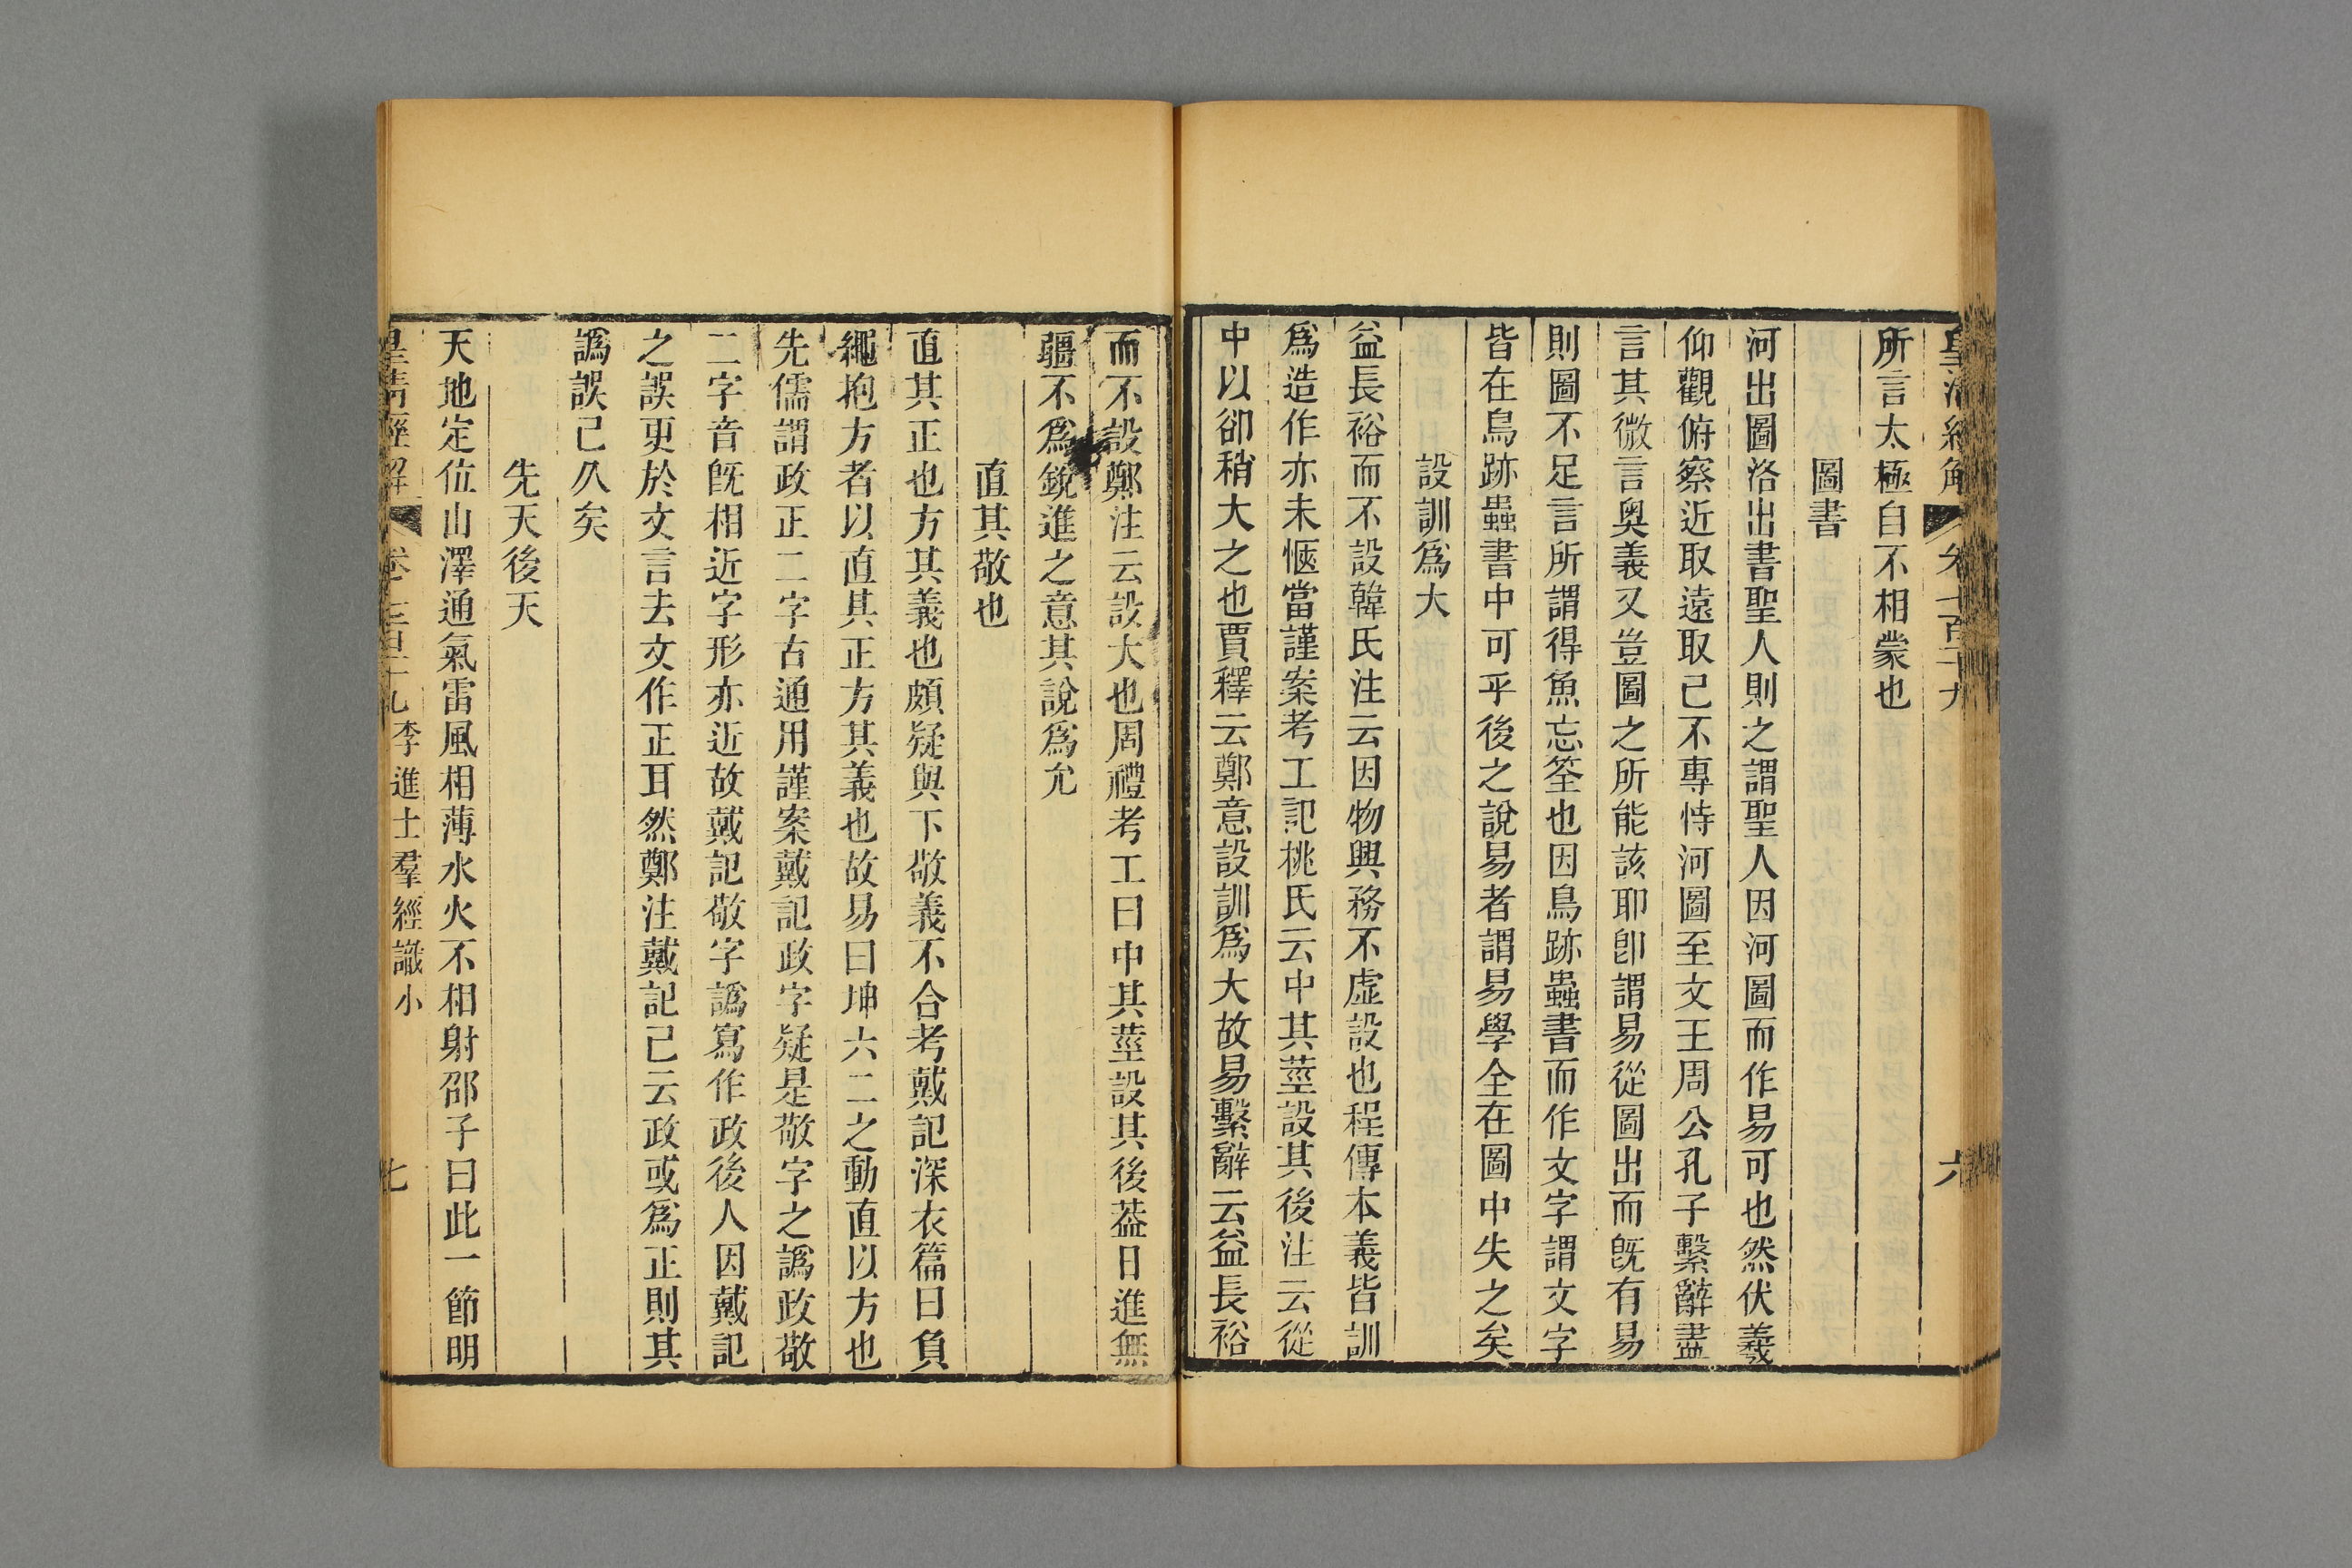 所言太極自不相蒙也
圖書
河出圖洛出書聖人則之謂聖人因河圖而作易可也然伏羲
仰觀俯察近取遠取已不專恃河圖至文王周公孔子繫辭盡
言其微言奧義又豈圖之所能該耶卽謂易從圖出而旣有易
則圖不足言所謂得魚忘筌也因鳥跡蟲書而作文字謂文字
皆在鳥跡蟲書中可乎後之說易者謂易學全在圖中失之矣
設訓爲大
益長裕而不設韓氏注云因物興務不虛設也程傳本義皆訓
爲造作亦未愜當謹案考工記桃氏云中其莖設其後注云從
中以卻稍大之也賈釋云鄭意設訓爲大故易繫辭云益長裕
而不設鄭注云設大也周禮考工曰中其莖設其後葢日進無
疆不爲銳進之意其說爲允
直其敬也
直其正也方其義也頗疑與下敬義不合考戴記深衣篇曰負
繩抱方者以直其正方其義也故易曰坤六二之動直以方也
先儒謂政正二字古通用謹案戴記政字疑是敬字之譌政敬
二字音旣相近字形亦近故戴記敬字譌寫作政後人因戴記
之誤更於文言去文作正耳然鄭注戴記已云政或爲正則其
譌誤已久矣
先天後天
天地定位山澤通氣雷風相薄水火不相射邵子曰此一節明
皇清經解 卷 李進士羣經識小 七